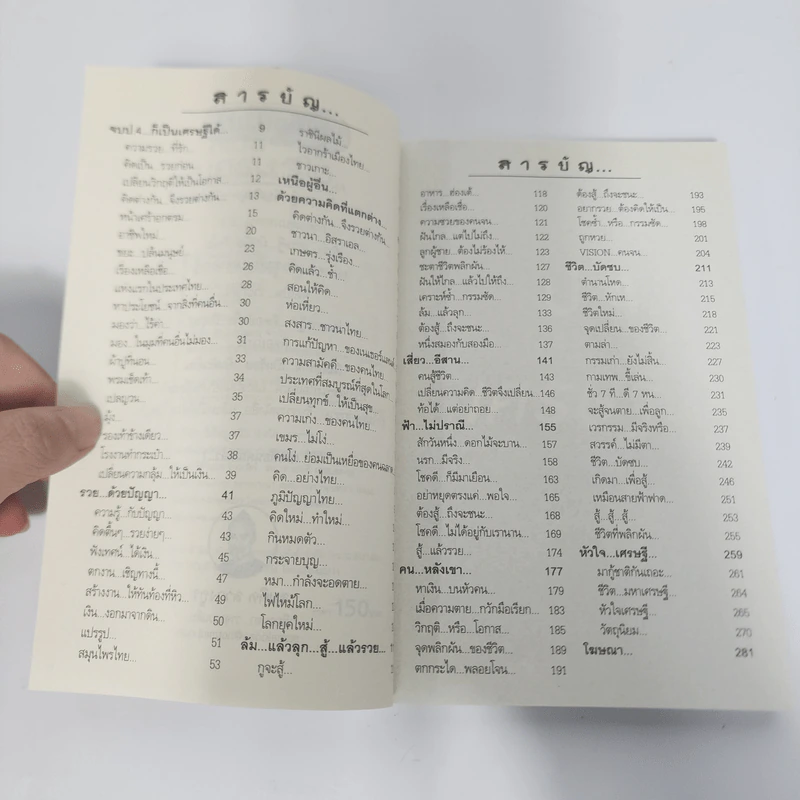 สารบัญ...
จบป.4...ก็เป็นเศรษฐีได้... 9
ความรวย...ที่รัก... 11
คิดเป็น...รวยก่อน... 11
เปลี่ยนวิกฤติให้เป็นโอกาส... 12
คิดต่างกัน...จึงรวยต่างกัน 13
หน้าเศร้าอกตรม... 15
อาชีพใหม่... 20
ขยะ...ปล้นมนุษย์... 23
เรื่องเหลือเชื่อ... 26
แห่งแรกในประเทศไทย... 28
หาประโยชน์...จากสิ่งที่คนอื่น... 30
มองว่า...ไร้ค่า... 30
มอง...ในมุมที่คนอื่นไม่มอง... 31
ผ้าปูที่นอน... 33
พรมเช็ดเท้า... 34
เปลญวน... 35
มุ้ง... 37
รองเท้าข้างเดียว... 37
โรงงานทำกระเป๋า... 38
เปลี่ยนความกลุ้ม...ให้เป็นเงิน... 39
รวย...ด้วยปัญญา... 41
ความรู้...กับปัญญา... 43
คิดตื้นๆ...รวยง่ายๆ... 43
ฟังเทศน์...ได้เงิน... 45
ตกงาน...เชิญทางนี้... 47
สร้างงาน...ให้ท้องที่หิว... 49
เงิน...งอกมาจากดิน... 50
แปรรูป... 51
สมุนไพรไทย... 53
ราชินีผลไม้...
ไวอากร้าเมืองไทย...
ชาวเกาะ...
เหนือผู้อื่น...
ด้วยความคิดที่แตกต่าง...
คิดต่างกัน...จึงรวยต่างกัน
ชาวนา...อิสราเอล
เกษตร...รุ่งเรือง...
คิดแล้ว...ช้ำ...
สอนให้คิด...
ห่อเหี่ยว...
สงสาร...ชาวนาไทย...
การแก้ปัญหา...ของเนเธอร์แลนด์
ความสามัคคี...ของคนไทย
ประเทศที่สมบูรณ์ที่สุดในโลก
เปลี่ยนทุกข์...ให้เป็นสุข...
ความเก่ง...ของคนไทย...
เขมร...ไม่โง่...
คนโง่...ย่อมเป็นเหยื่อของคนฉลาด
คิด...อย่างไทย...
ภูมิปัญญาไทย...
คิดใหม่...ทำใหม่...
กินหมดตัว...
กระจายบุญ...
หมา...กำลังจะอดตาย...
ไฟไหม้โลก...
โลกยุคใหม่...
ล้ม...แล้วลุก...สู้...แล้วรวย...
กูจะสู้...
สารบัญ...
อาหาร...ฮ่องเต้... 118
เรื่องเหลือเชื่อ... 120
ความซวยของคนจน... 121
ฝันไกล...แต่ไปไม่ถึง... 122
ลูกผู้ชาย...ต้องไม่ร้องไห้... 123
ชะตาชีวิตพลิกผัน... 127
ฝันให้ไกล...แล้วไปให้ถึง... 127
เคราะห์ซ้ำ...กรรมซัด... 129
ล้ม...แล้วลุก... 133
ต้องสู้...ถึงจะชนะ... 136
หนึ่งสมองกับสองมือ... 137
เสี่ยว...อีสาน... 141
คนสู้ชีวิต... 143
เปลี่ยนความคิด...ชีวิตจึงเปลี่ยน... 146
ท้อได้...แต่อย่าถอย... 148
ฟ้า...ไม่ปรานี... 155
สักวันหนึ่ง...ดอกไม้จะบาน... 157
นรก...มีจริง... 158
โชคดี...ก็มีมาเยือน... 163
อย่าหยุดตรงแค่...พอใจ... 165
ต้องสู้...ถึงจะชนะ... 168
โชคดี...ไม่ได้อยู่กับเรานาน... 169
สู้...แล้วรวย... 174
คน...หลังเขา... 177
หาเงิน...บนหัวคน... 179
เมื่อความตาย...กวักมือเรียก... 183
วิกฤติ...หรือ...โอกาส... 185
จุดพลิกผัน...ของชีวิต... 189
ตกกระได...พลอยโจน... 191
ต้องสู้...ถึงจะชนะ... 193
อยากรวย...ต้องคิดให้เป็น... 195
โชคช้ำ...หรือ...กรรมซัด... 198
ถูกหวย... 201
VISION...คนจน... 204
ชีวิต...บัดซบ... 211
ตำนานโหด... 213
ชีวิต...หักเห... 215
ชีวิตใหม่... 218
จุดเปลี่ยน...ของชีวิต... 221
ตามล่า... 223
กรรมเก่า...ยังไม่สิ้น... 227
กามเทพ...ขี้เล่น... 230
ชั่ว 7 ที...ดี 7 หน... 232
จะสู้จนตาย...เพื่อลูก... 235
เวรกรรม...มีจริงหรือ... 237
สวรรค์...ไม่มีตา... 239
ชีวิต...บัดซบ... 242
เกิดมา...เพื่อสู้... 246
เหมือนสายฟ้าฟาด... 251
สู้...สู้...สู้... 253
ชีวิตที่พลิกผัน... 255
หัวใจ...เศรษฐี... 259
มากู้ชาติกันเถอะ... 261
ชีวิต...มหาเศรษฐี... 264
หัวใจเศรษฐี... 265
วัตถุนิยม... 270
โฆษณา... 281